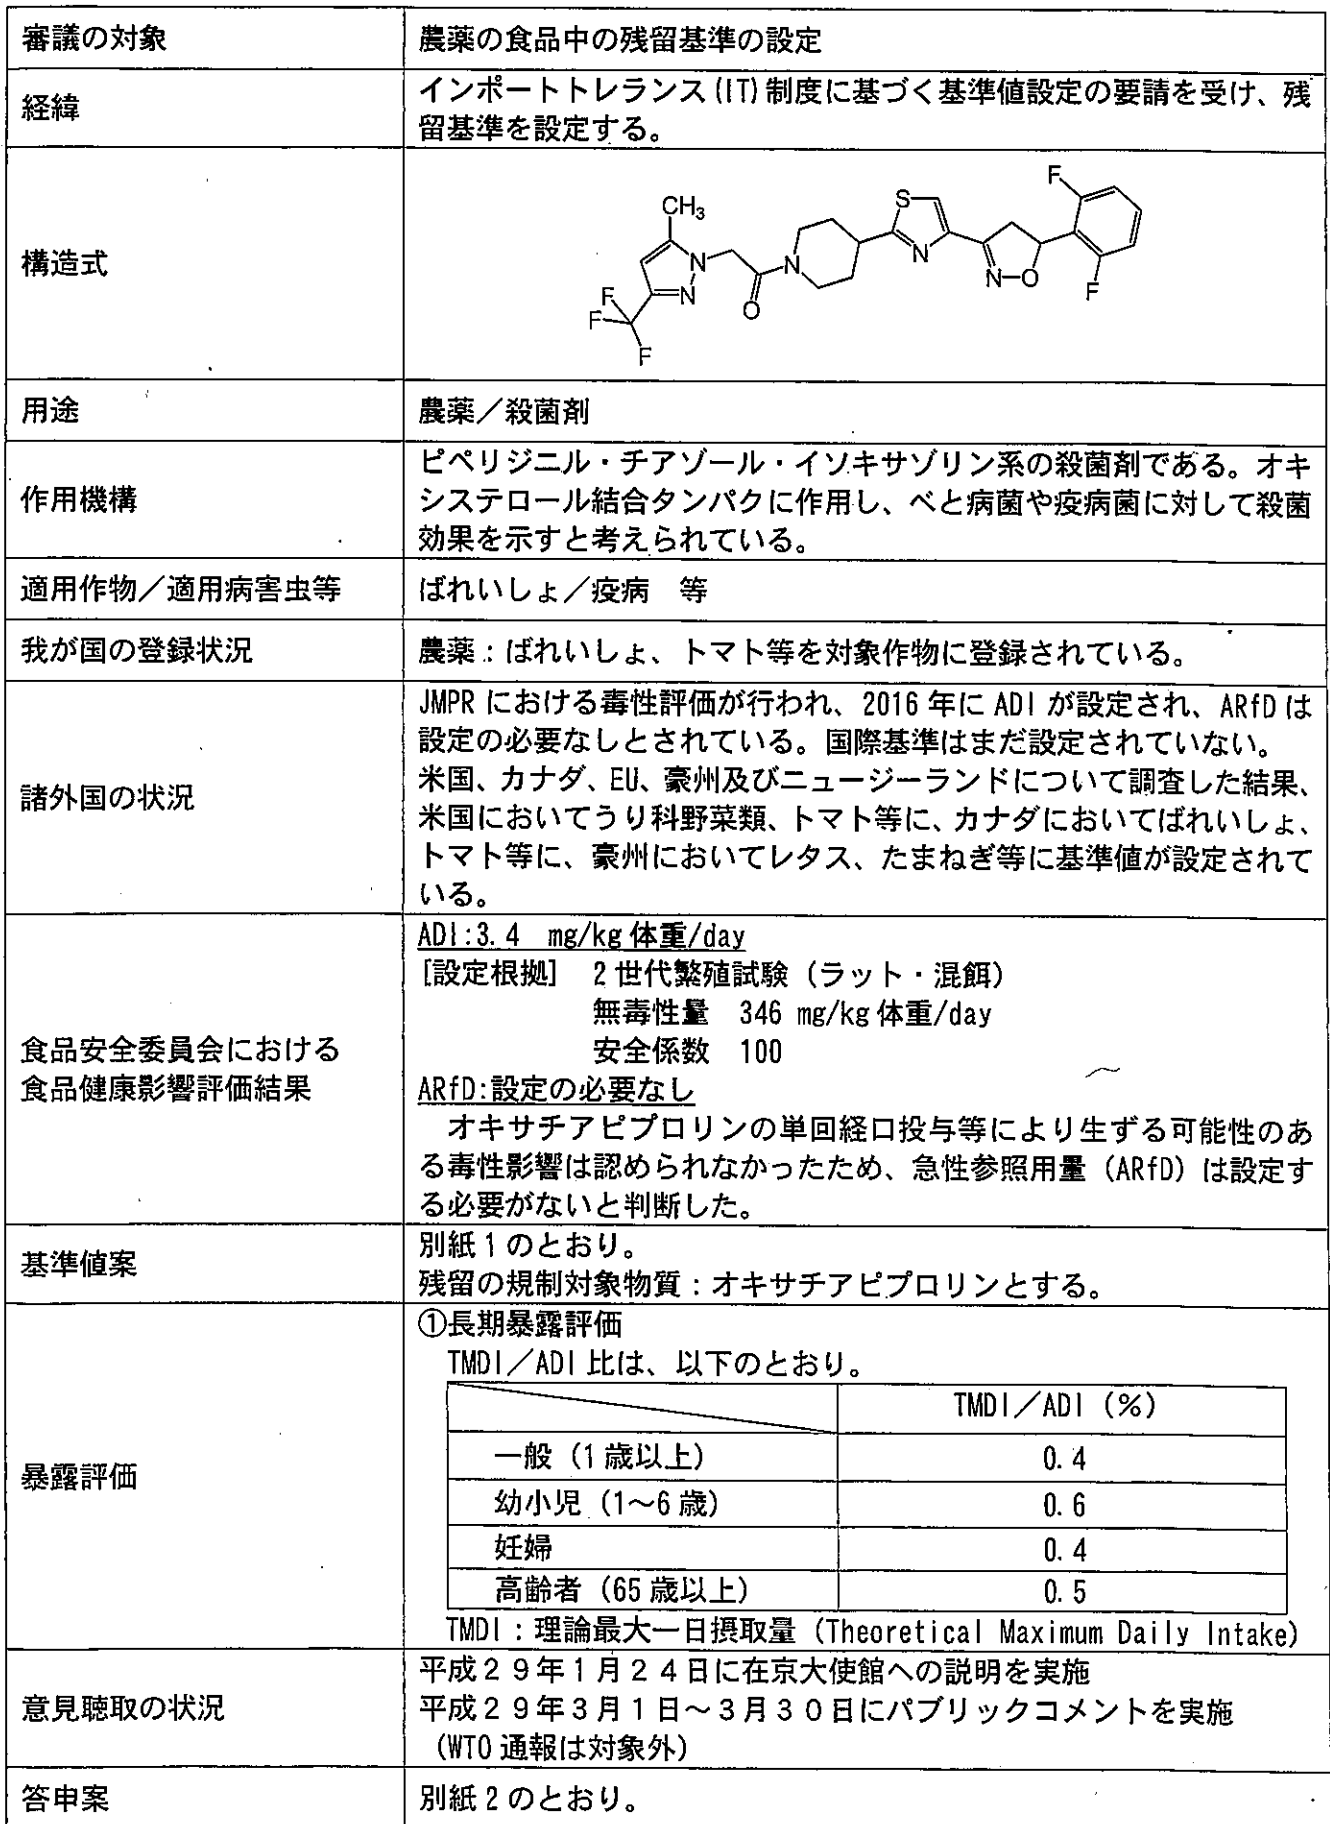 審議の対象
農薬の食品中の残留基準の設定
経緯
インポートトレランス(IT)制度に基づく基準値設定の要請を受け、残
留基準を設定する。
構造式
F
S
CH3
N
N
N
N
N-O
O
F
F
F
F
用途
農薬／殺菌剤
作用機構
ピペリジニル・チアゾール・イソキサゾリン系の殺菌剤である。オキ
システロール結合タンパクに作用し、べと病菌や疫病菌に対して殺菌
効果を示すと考えられている。
適用作物／適用病害虫等
ばれいしょ／疫病　等
我が国の登録状況
農薬：ばれいしょ、トマト等を対象作物に登録されている。
諸外国の状況
JMPR における毒性評価が行われ、2016 年に ADI が設定され、ARfD は
設定の必要なしとされている。国際基準はまだ設定されていない。
米国、カナダ、EU、豪州及びニュージーランドについて調査した結果、
米国においてうり科野菜類、トマト等に、カナダにおいてばれいしょ、
トマト等に、豪州においてレタス、たまねぎ等に基準値が設定されて
いる。
食品安全委員会における
食品健康影響評価結果
ADI:3.4　mg/kg 体重/day
[設定根拠]　2 世代繁殖試験（ラット・混餌）
無毒性量　346 mg/kg 体重/day
安全係数　100
ARfD:設定の必要なし
オキサチアピプロリンの単回経口投与等により生ずる可能性のあ
る毒性影響は認められなかったため、急性参照用量（ARfD）は設定す
る必要がないと判断した。
基準値案
別紙 1 のとおり。
残留の規制対象物質：オキサチアピプロリンとする。
暴露評価
①長期暴露評価
TMDI／ADI 比は、以下のとおり。
TMDI／ADI（%）
一般（1 歳以上）
0.4
幼小児（1～6 歳）
0.6
妊婦
0.4
高齢者（65 歳以上）
0.5
TMDI：理論最大一日摂取量（Theoretical Maximum Daily Intake）
意見聴取の状況
平成２９年１月２４日に在京大使館への説明を実施
平成２９年３月１日～３月３０日にパブリックコメントを実施
（WTO 通報は対象外）
答申案
別紙 2 のとおり。